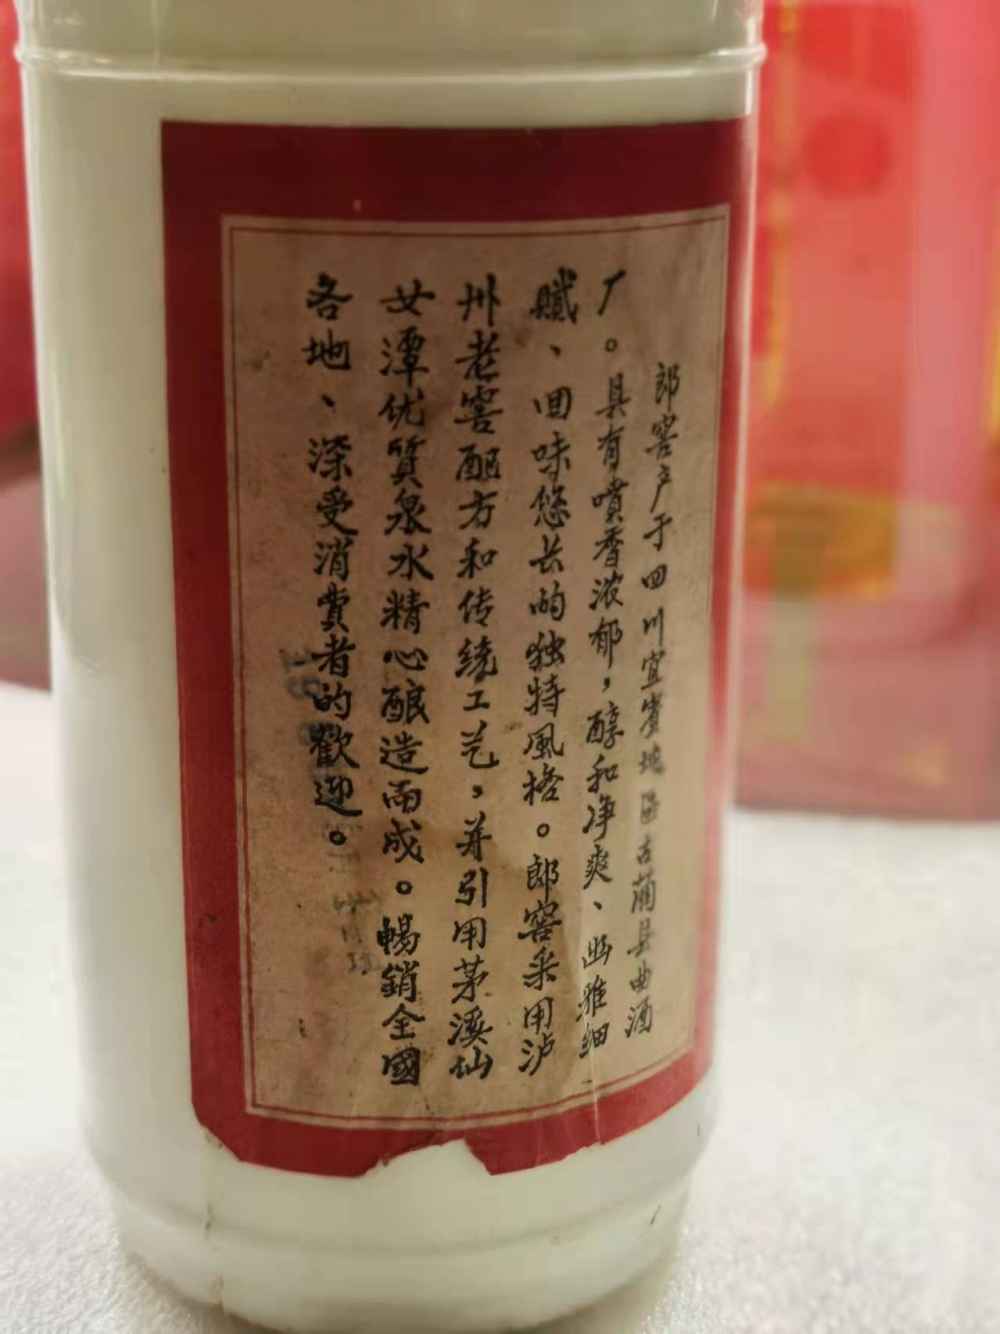 郎窖产于四川宜賓地區古蔺县曲酒
厂。具有噴香浓郁，醇和净爽、幽雅细
腻、回味悠长的独特風格。郎窖采用泸
州老窖配方和传统工艺，并引用茅溪仙
女潭优質泉水精心酿造而成。暢銷全國
各地、深受消費者的歡迎。